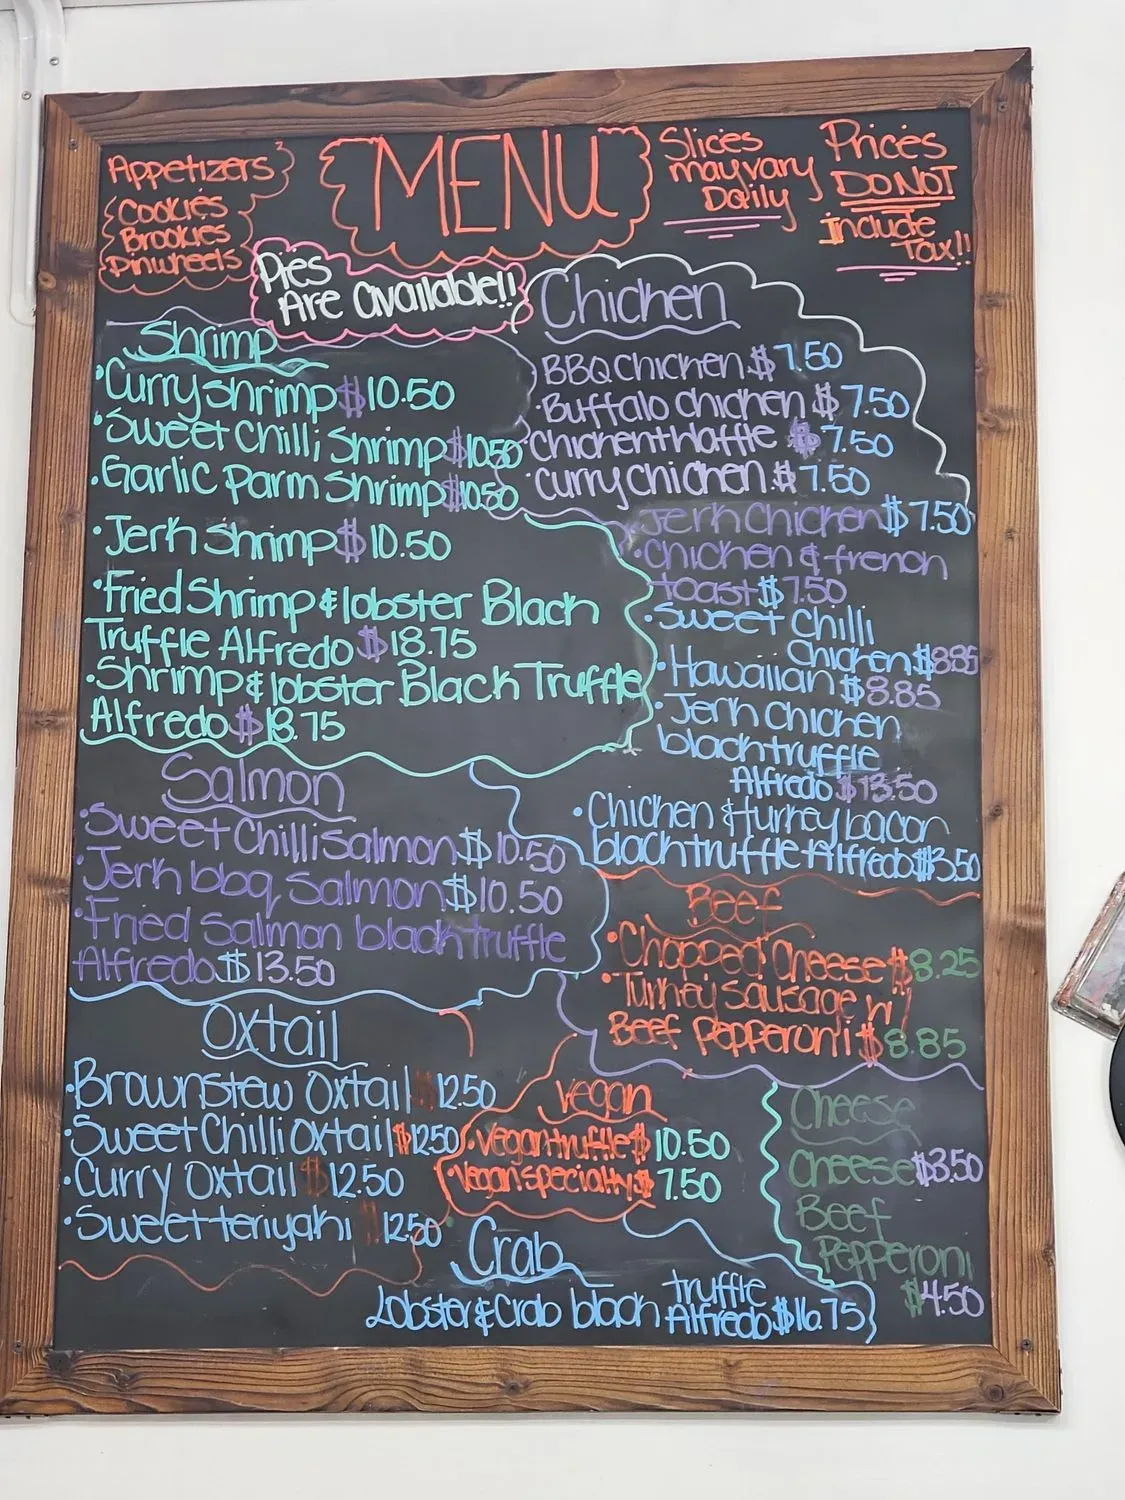 MENU
Appetizers
Cookies
Brookies
Pinwheels
Slices
may vary
Daily
Prices
DO NOT
Include
Tax!!
Pies
Are available!!
Shrimp
•Curry Shrimp $10.50
•Sweet Chilli Shrimp $10.50
•Garlic Parm Shrimp $10.50
•Jerk Shrimp $10.50
•Fried Shrimp & lobster Black
Truffle Alfredo $18.75
•Shrimp & lobster Black Truffle
Alfredo $18.75
Chicken
BBQ Chicken $7.50
•Buffalo Chicken $7.50
•Chicken + Waffle $7.50
•Curry Chicken $7.50
Jerk Chicken $7.50
•Chicken & french
toast $7.50
•Sweet Chilli
Chicken $8.85
•Hawaiian $8.85
•Jerk Chicken
black truffle
Alfredo $13.50
•Chicken & turkey bacon
black truffle Alfredo $13.50
Salmon
•Sweet Chilli Salmon $10.50
•Jerk bbq Salmon $10.50
•Fried Salmon black truffle
Alfredo $13.50
Beef
•Chopped Cheese $8.25
•Turkey Sausage n'
Beef Pepperoni $8.85
Oxtail
•Brownstew Oxtail $12.50
•Sweet Chilli Oxtail $12.50
•Curry Oxtail $12.50
•Sweet teriyaki $12.50
Vegan
•Vegan truffle $10.50
•Vegan specialty $7.50
Cheese
Cheese $3.50
Beef
Pepperoni
$4.50
Crab
Lobster & Crab black truffle
Alfredo $16.75